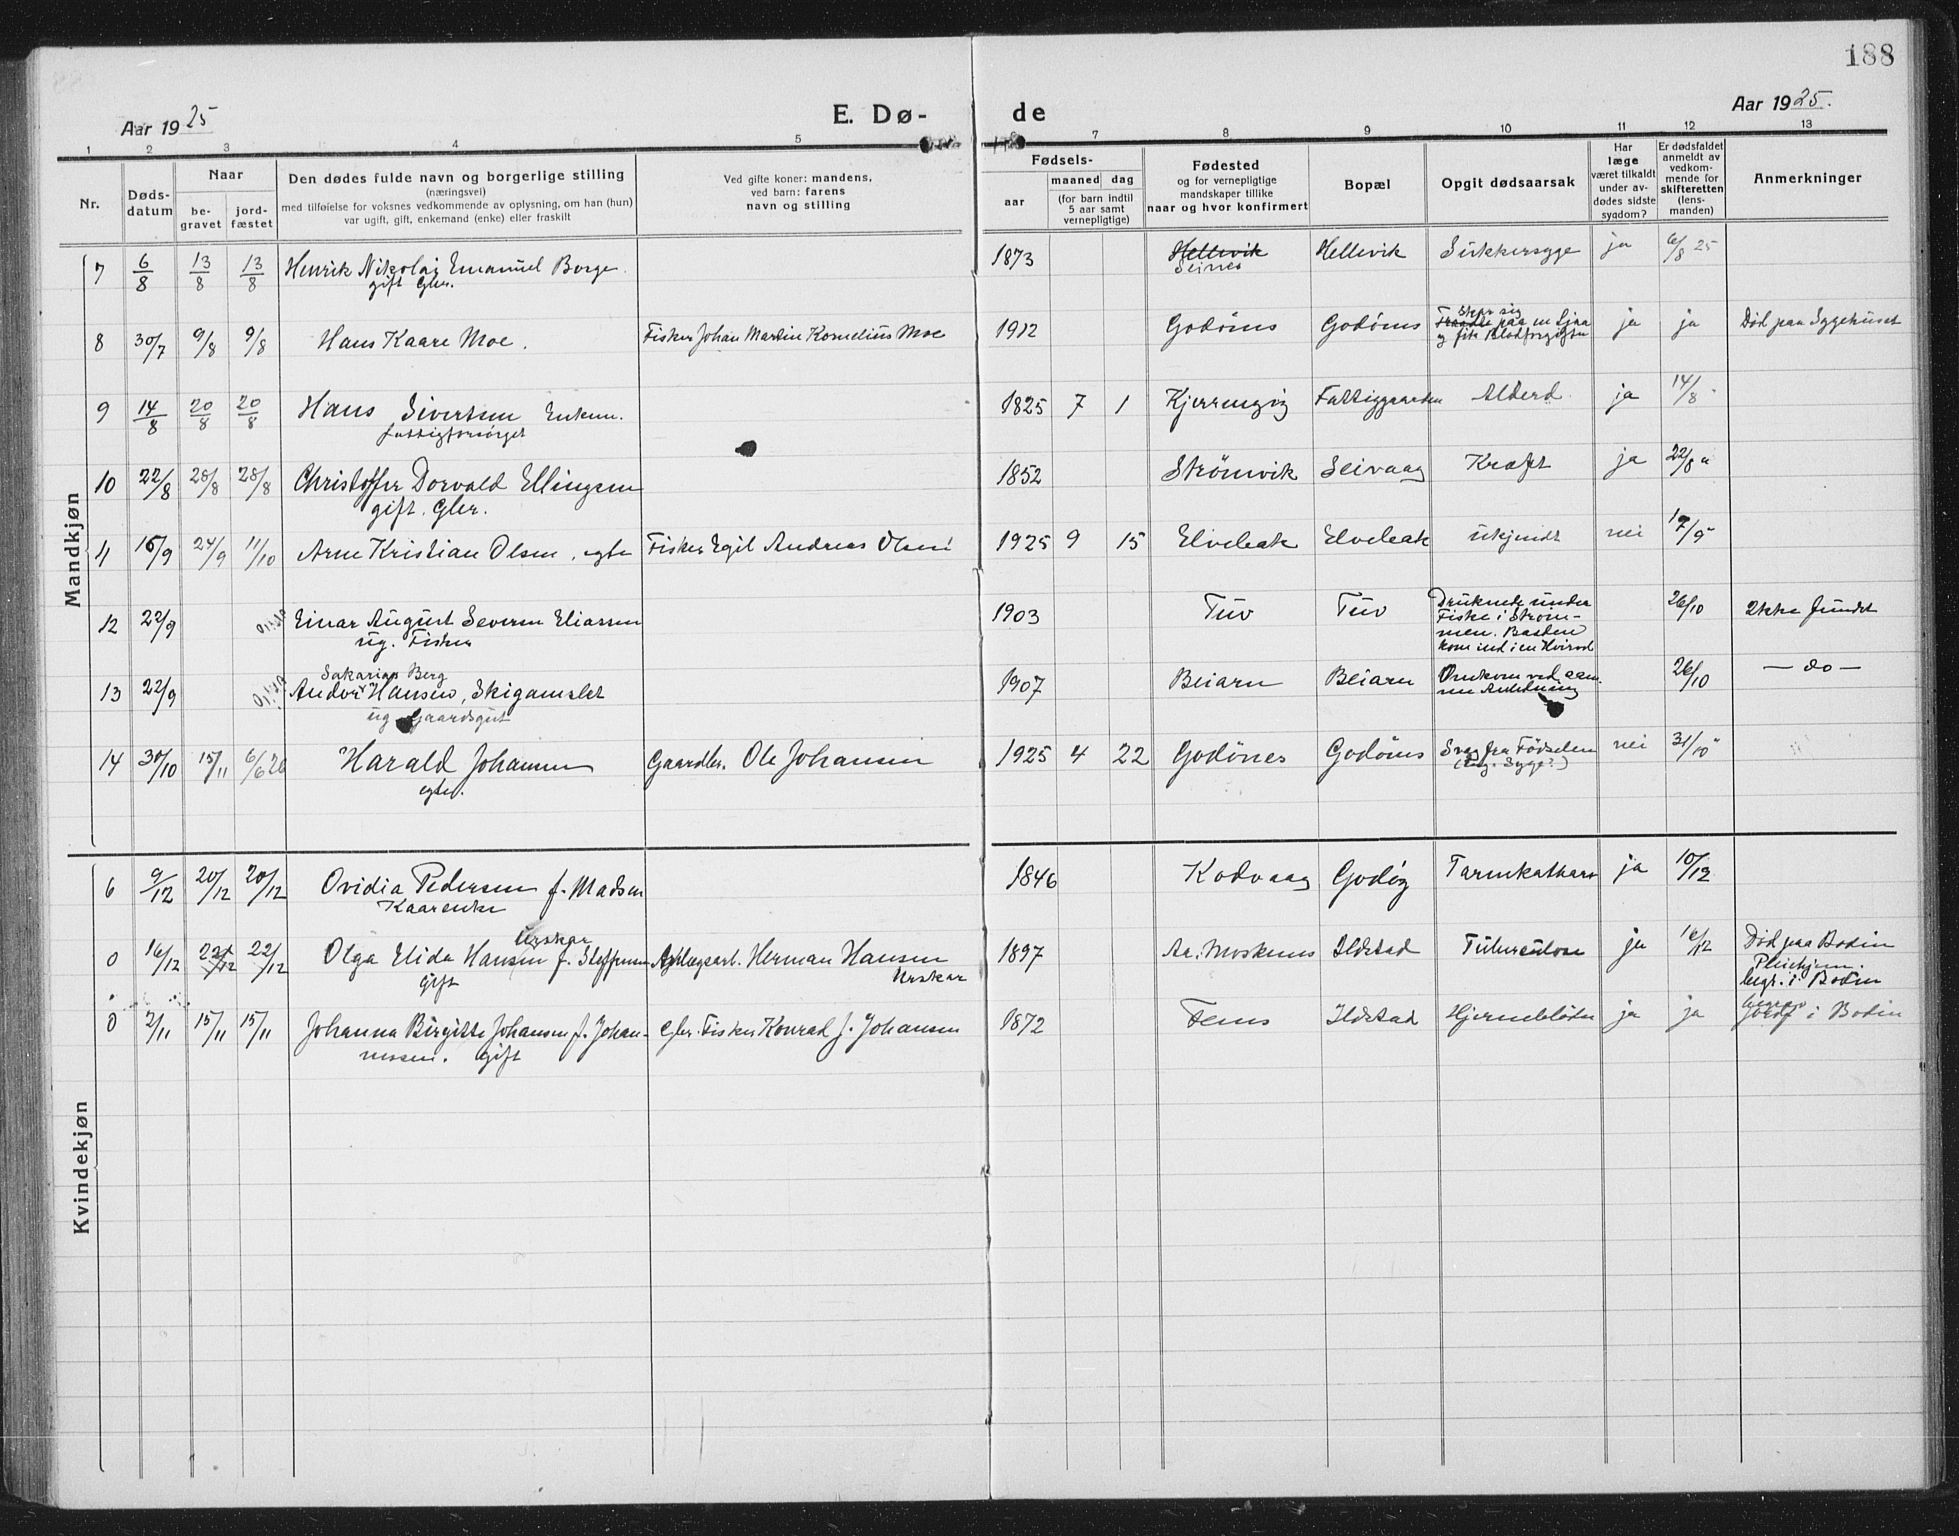 188
Aar 1925
E. Dø-
de
Aar 1925.
1 2 3 4 5 7 8 9 10 11 12 13
Nr.
Døds-
datum
Naar
be-
gravet
jord-
fæstet
Den dødes fulde navn og borgerlige stilling
(næringsvei)
med tilføielse for voksnes vedkommende av oplysning, om han (hun)
var ugift, gift, enkemand (enke) eller fraskilt
Ved gifte koner: mandens,
ved barn: farens
navn og stilling
Fødsels-
aar
maaned dag
(for barn indtil
5 aar samt
vernepligtige)
Fødested
og for vernepligtige
mandskaper tillike
naar og hvor konfirmert
Bopæl
Opgit dødsaarsak
Har
læge
været tilkaldt
under av-
dødes sidste
sygdom?
Er dødsfaldet
anmeldt av
vedkom-
mende for
skifteretten
(lens-
manden)
Anmerkninger
Mandkjøn
7 6/8 13/8 13/8 Henrik Nikolai Emanuel Borge. 1873 Hellevik Hellevik Sukkersyge ja 6/8 25
gift Gbr. Seines
8 30/7 9/8 9/8 Hans Kaare Moe. Fisker Johan Martin Kornelius Moe 1912 Godönes Godönes Skar sig
Traadte paa en Ljaa ja ja Død paa Sygehuset
og fik Blodforgiftn
9 14/8 20/8 20/8 Hans Sivertsen Enkem. 1825 7 1 Kjerringøy Fattiggaarden Alderd. ja 14/8 "
fattigforsørget
10 22/8 28/8 28/8 Christoffer Dorvald Ellingsen 1852 Strømvik Seivaag Kræft ja 22/8 "
gift. Gbr.
11 16/9 24/9 11/10 Arne Kristian Olsen, egte Fisker Egil Andreas Olsen 1925 9 15 Elveleak Elveleak ukjendt nei 17/9 "
12 22/9 Einar August Severin Eliassen 1903 Tuv Tuv Druknede under 26/10 Ikke fundet
ug. Fisker Fiske i Strøm-
men. Baaden
kom ind i en Hvirvel
Sakarias Berg
13 22/9 Andor Hansen, Skigamslet 1907 Beiarn Beiarn Omkom ved sam- 26/10 — do —
ug. Gaardsgut me Anledning
14 30/10 15/11 6/6 26 Harald Johansen Gaardbr. Ole Johansen 1925 4 22 Godönes Godönes Svag fra Fødselen nei 31/10 "
egte.
Kvindekjøn
6 9/12 20/12 20/12 Ovidia Pedersen f. Madsen 1846 Kodvaag Godøy Tarmkatharr ja 10/12
Kaarenke
Urskar
0 16/12 22/12 22/12 Olga Elida Hansen f. Steffensen Herman Hansen 1897 Aa i Moskenes Ildstad Tuberculose ja 16/12 Død paa Bodin
gift Urskar Pleiehjem.
begr. i Bodin
0 2/11 15/11 15/11 Johanna Birgitte Johansen f. Johan- Gbr. Fisker Konrad J. Johansen 1872 Fenes Ildstad Hjerneblødn ja ja Jordf i Bodin
nesen. gift